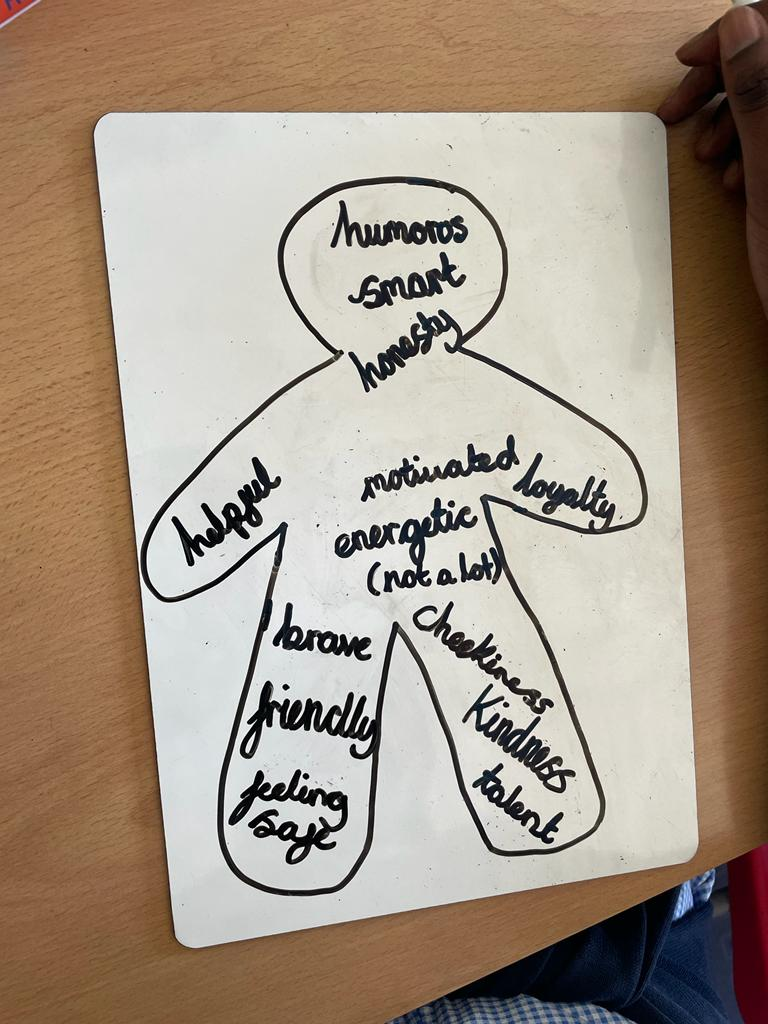 humoros
smart
honesty
motivated
loyalty
helpful
energetic
(not a lot)
brave
friendly
feeling
safe
cheekiness
Kindness
talent